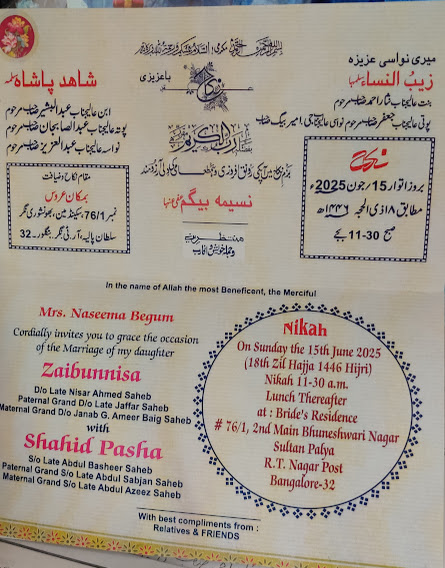 میری نواسی عزیزہ
زیبُ النساء سلمہا
بنت عالیجناب نثار احمد صاحب مرحوم
پوتی عالیجناب جعفر صاحب مرحوم نواسی عالیجناب امیر بیگ صاحب
باعزیزی
شاھد پاشاہ سلمہ
ابن عالیجناب عبدالبشیر صاحب مرحوم
پوتہ عالیجناب عبدالصابجان صاحب مرحوم
نواسہ عالیجناب عبدالعزیز صاحب مرحوم
نکاح
بروز اتوار 15/جون 2025ء
مطابق ۱۸ ذی الحجہ ۱۴۴۶ھ
صبح 11-30 بجے
نسیمہ بیگم
مقام نکاح وضیافت
بمکان عروس
نمبر 76/1، سیکنڈ مین، بھونیشوری نگر
سلطان پالیہ، آر ٹی نگر، بنگلور۔ 32
In the name of Allah the most Beneficent, the Merciful
Mrs. Naseema Begum
Cordially invites you to grace the occasion
of the Marriage of my daughter
Zaibunnisa
D/o Late Nisar Ahmed Saheb
Paternal Grand D/o Late Jaffar Saheb
Maternal Grand D/o Janab G. Ameer Baig Saheb
with
Shahid Pasha
S/o Late Abdul Basheer Saheb
Paternal Grand S/o Late Abdul Sabjan Saheb
Maternal Grand S/o Late Abdul Azeez Saheb
Nikah
On Sunday the 15th June 2025
(18th Zif Hajja 1446 Hijri)
Nikah 11-30 a.m.
Lunch Thereafter
at : Bride's Residence
# 76/1, 2nd Main Bhuneshwari Nagar
Sultan Palya
R.T. Nagar Post
Bangalore-32
With best compliments from :
Relatives & FRIENDS